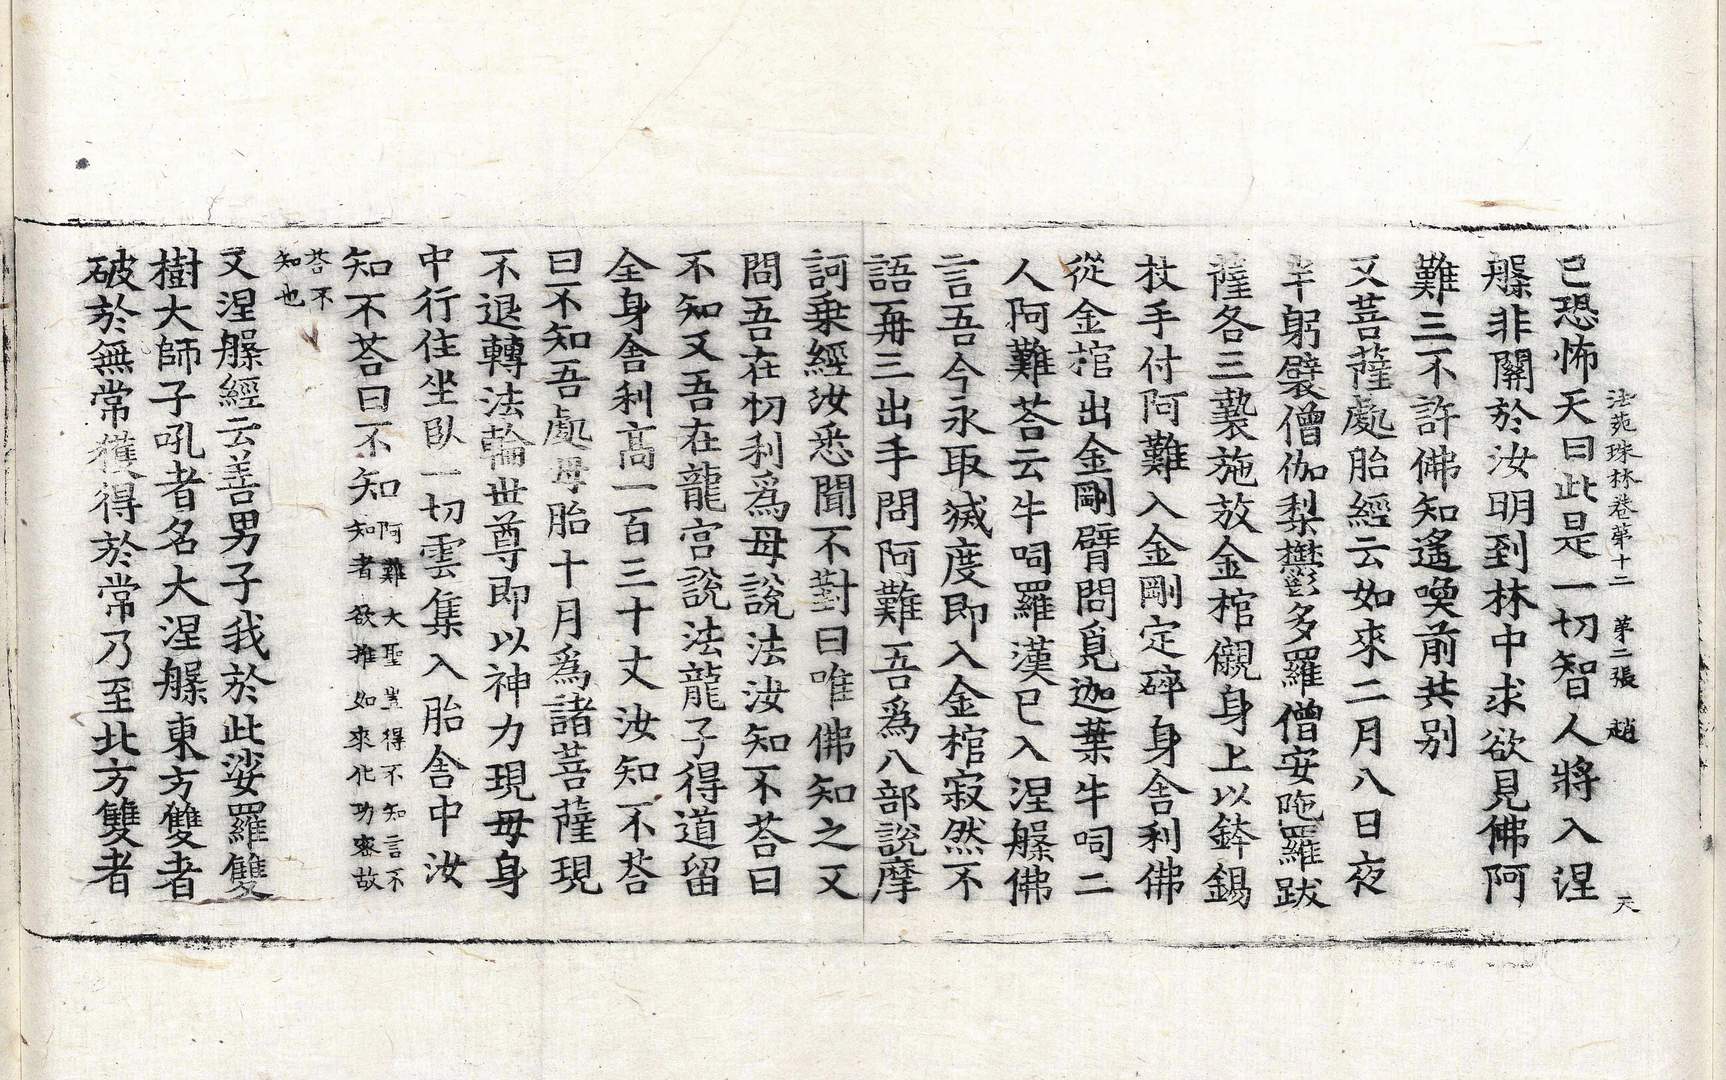 法苑珠林卷第十二　第二張　趙　天
已恐怖天曰此是一切智人將入涅
槃非關於汝明到林中求欲見佛阿
難三不許佛知遙喚前共别
又菩薩處胎經云如來二月八日夜
半躬襞僧伽梨欝多羅僧安陁羅跋
薩各三褺施放金棺儭身上以鉢錫
杖手付阿難入金剛定碎身舍利佛
從金棺出金剛臂問覓迦葉牛呞二
人阿難荅云牛呞羅漢已入涅槃佛
言吾今永取滅度即入金棺寂然不
語再三出手問阿難吾爲八部說摩
訶乗經汝悉聞不對曰唯佛知之又
問吾在忉利爲母說法汝知不荅曰
不知又吾在龍宫說法龍子得道留
全身舍利高一百三十丈汝知不荅
曰不知吾處母胎十月爲諸菩薩現
不退轉法輪世尊即以神力現母身
中行住坐臥一切雲集入胎舍中汝
知不荅曰不知阿難大聖豈得不知言不
知者欲推如來化功密故
荅不
知也
又涅槃經云善男子我於此娑羅雙
樹大師子吼者名大涅槃東方雙者
破於無常獲得於常乃至北方雙者